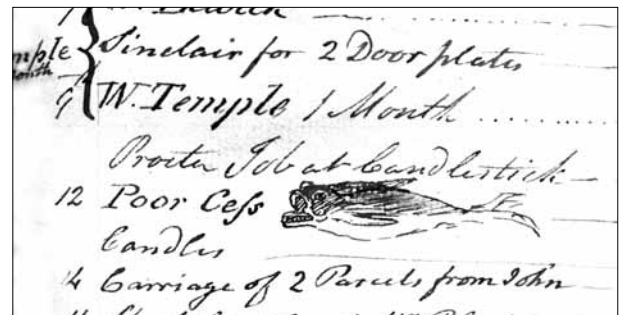 mple Sinclair for 2 Door plates
9 W. Temple 1 Month ..........
Procter Job at Candlestick —
12 Poor Cess
Candles
14 Carriage of 2 Parcels from John